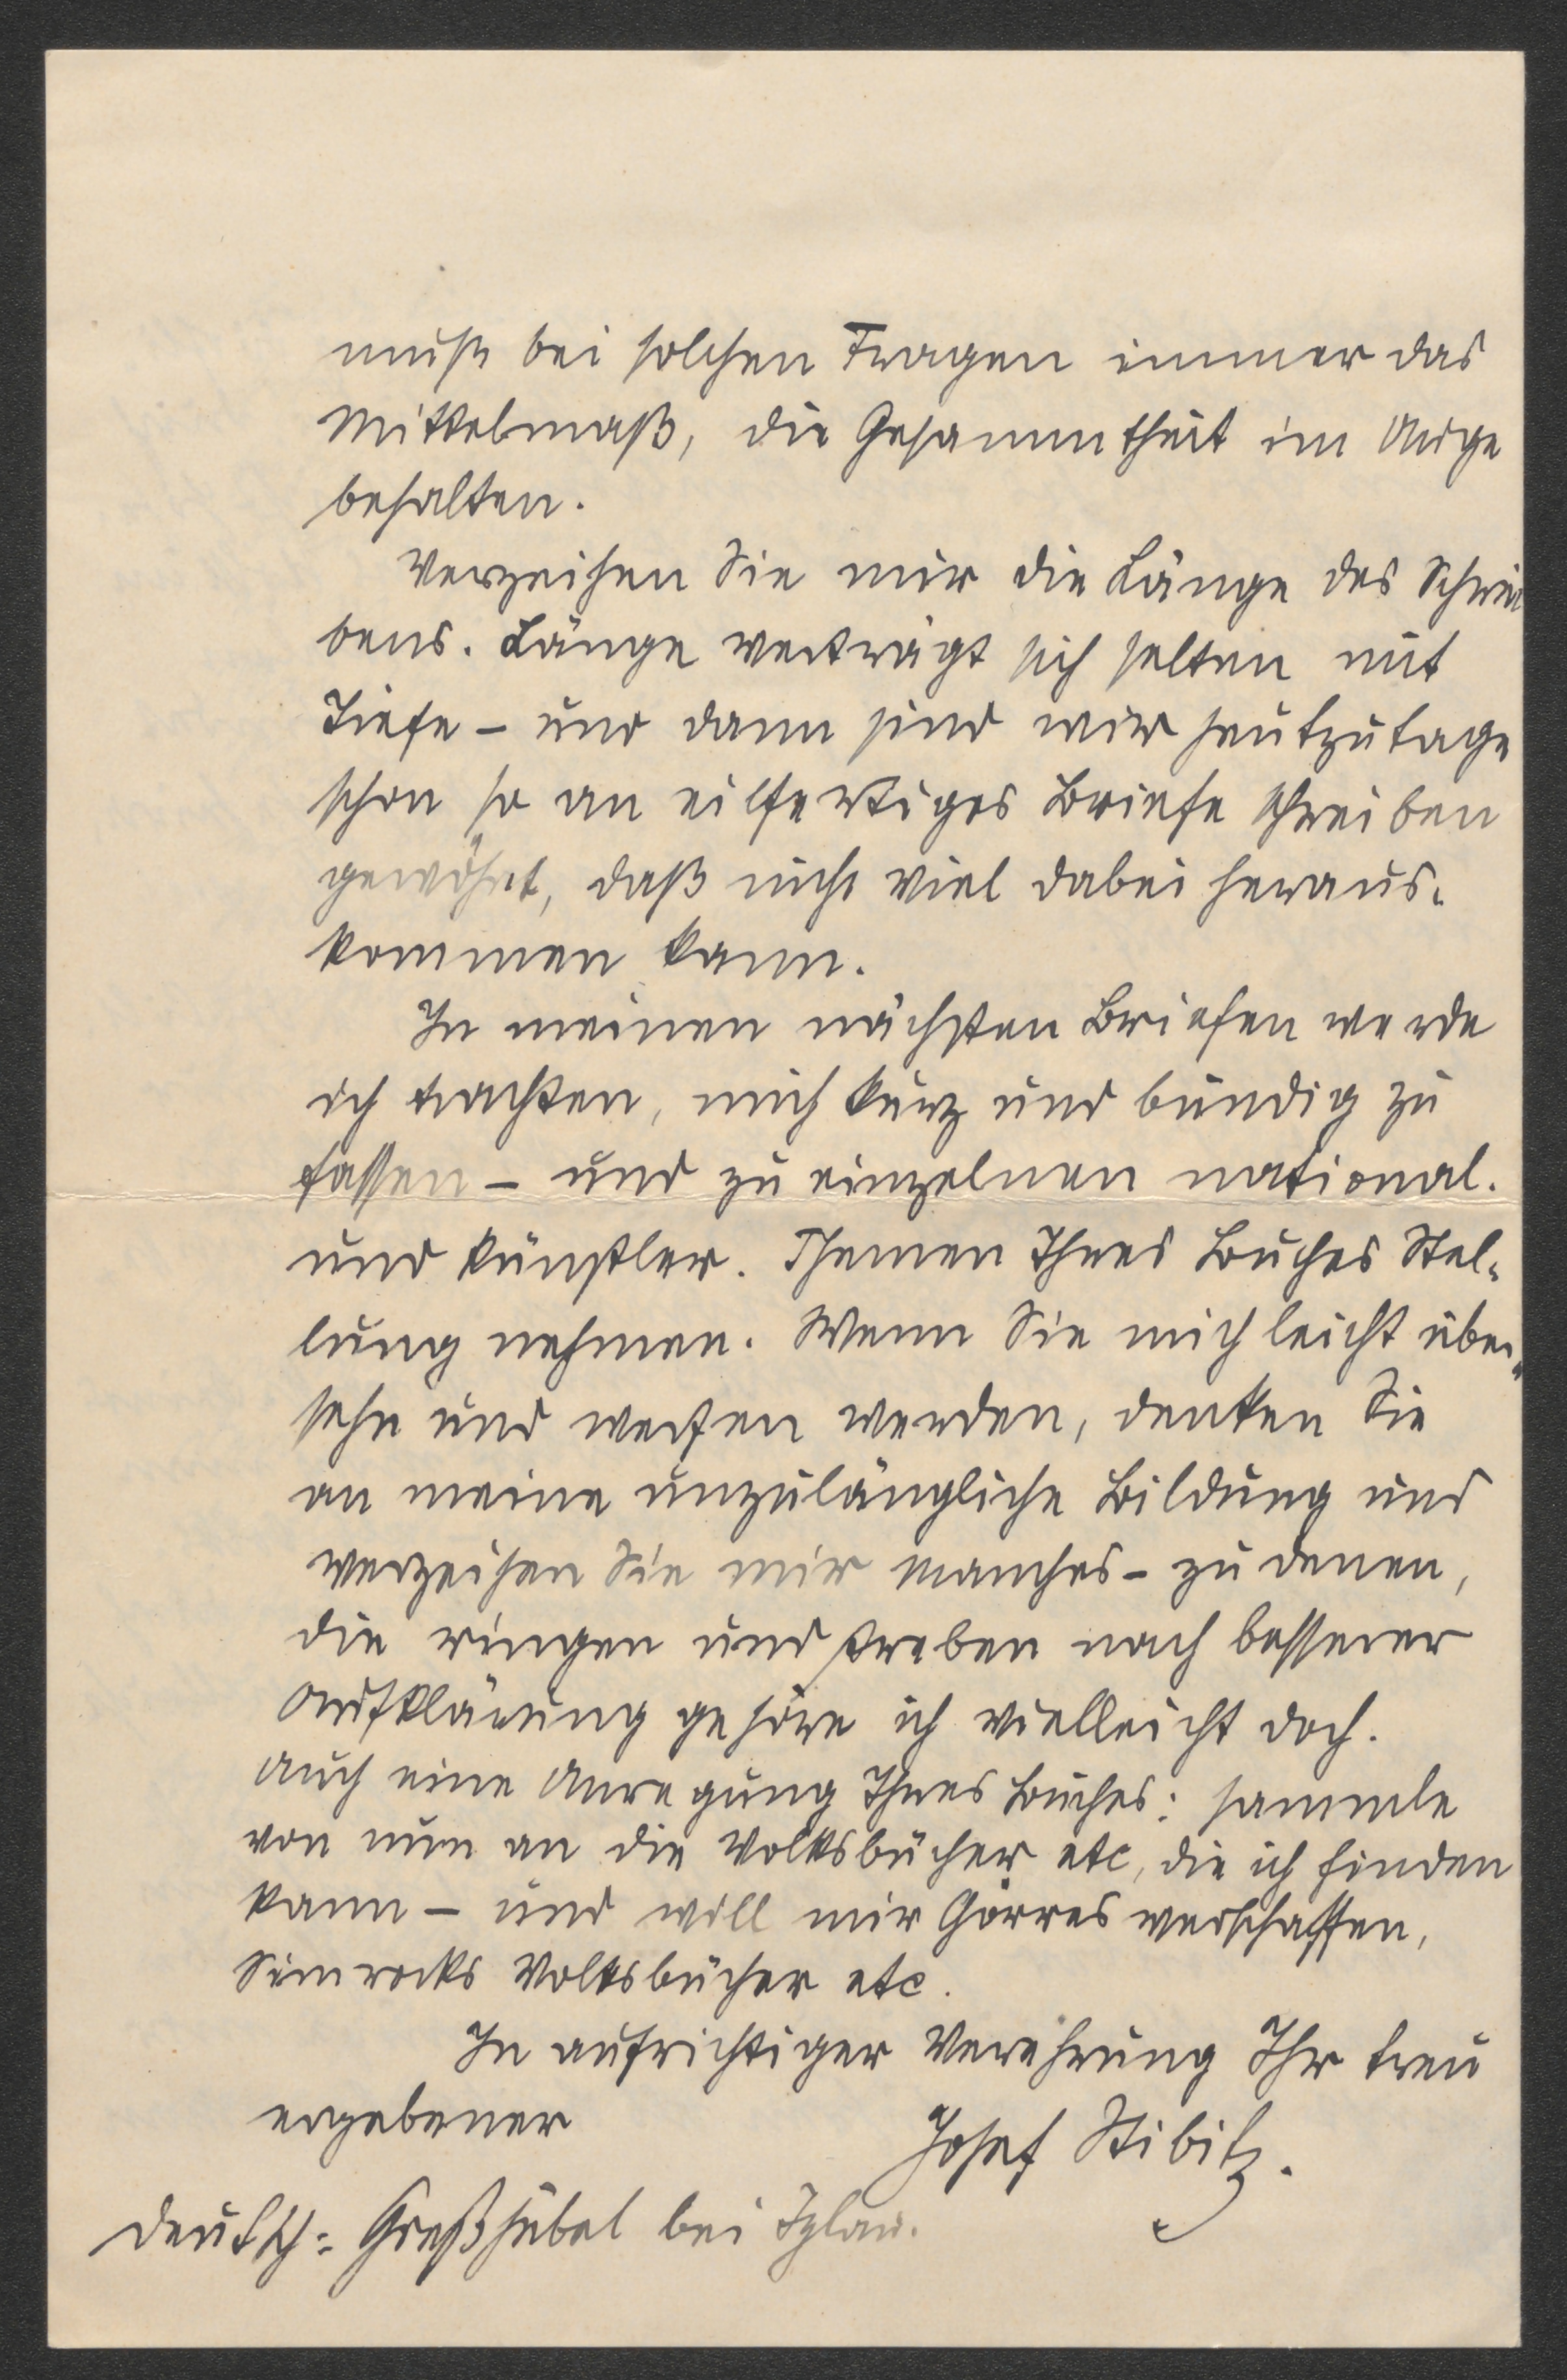 muß bei solchen Fragen immer das
Mittelmaß, die Gesammtheit im Auge
behalten.
Verzeihen Sie mir die Länge des Schrei
bens. Länge verträgt sich selten mit
Tiefe – und dann sind wir heutzutage
schon so an eilfertiges Briefe schreiben
gewöhnt, daß nicht viel dabei heraus-
kommen kann.
In meinen nächsten Briefen werde
ich trachten, mich kurz und bündig zu
fassen – und zu einzelnen national.
und künstler. Themen Ihres Buches Stel-
lung nehmen. Wenn Sie mich leicht über-
sehn und werfen werden, denken Sie
an meine unzulängliche Bildung und
verzeihen Sie mir manches – zu denen,
die ringen und streben nach besserer
Aufklärung gehöre ich vielleicht doch.
Auch eine Anregung Ihres Buches: sammle
von nun an die Volksbücher etc, die ich finden
kann – und will mir Görres verschaffen,
Simrocks Volksbücher etc.
In aufrichtiger Verehrung Ihr treu
ergebener Josef Stibitz.
Deutsch-Gießhübel bei Iglau.